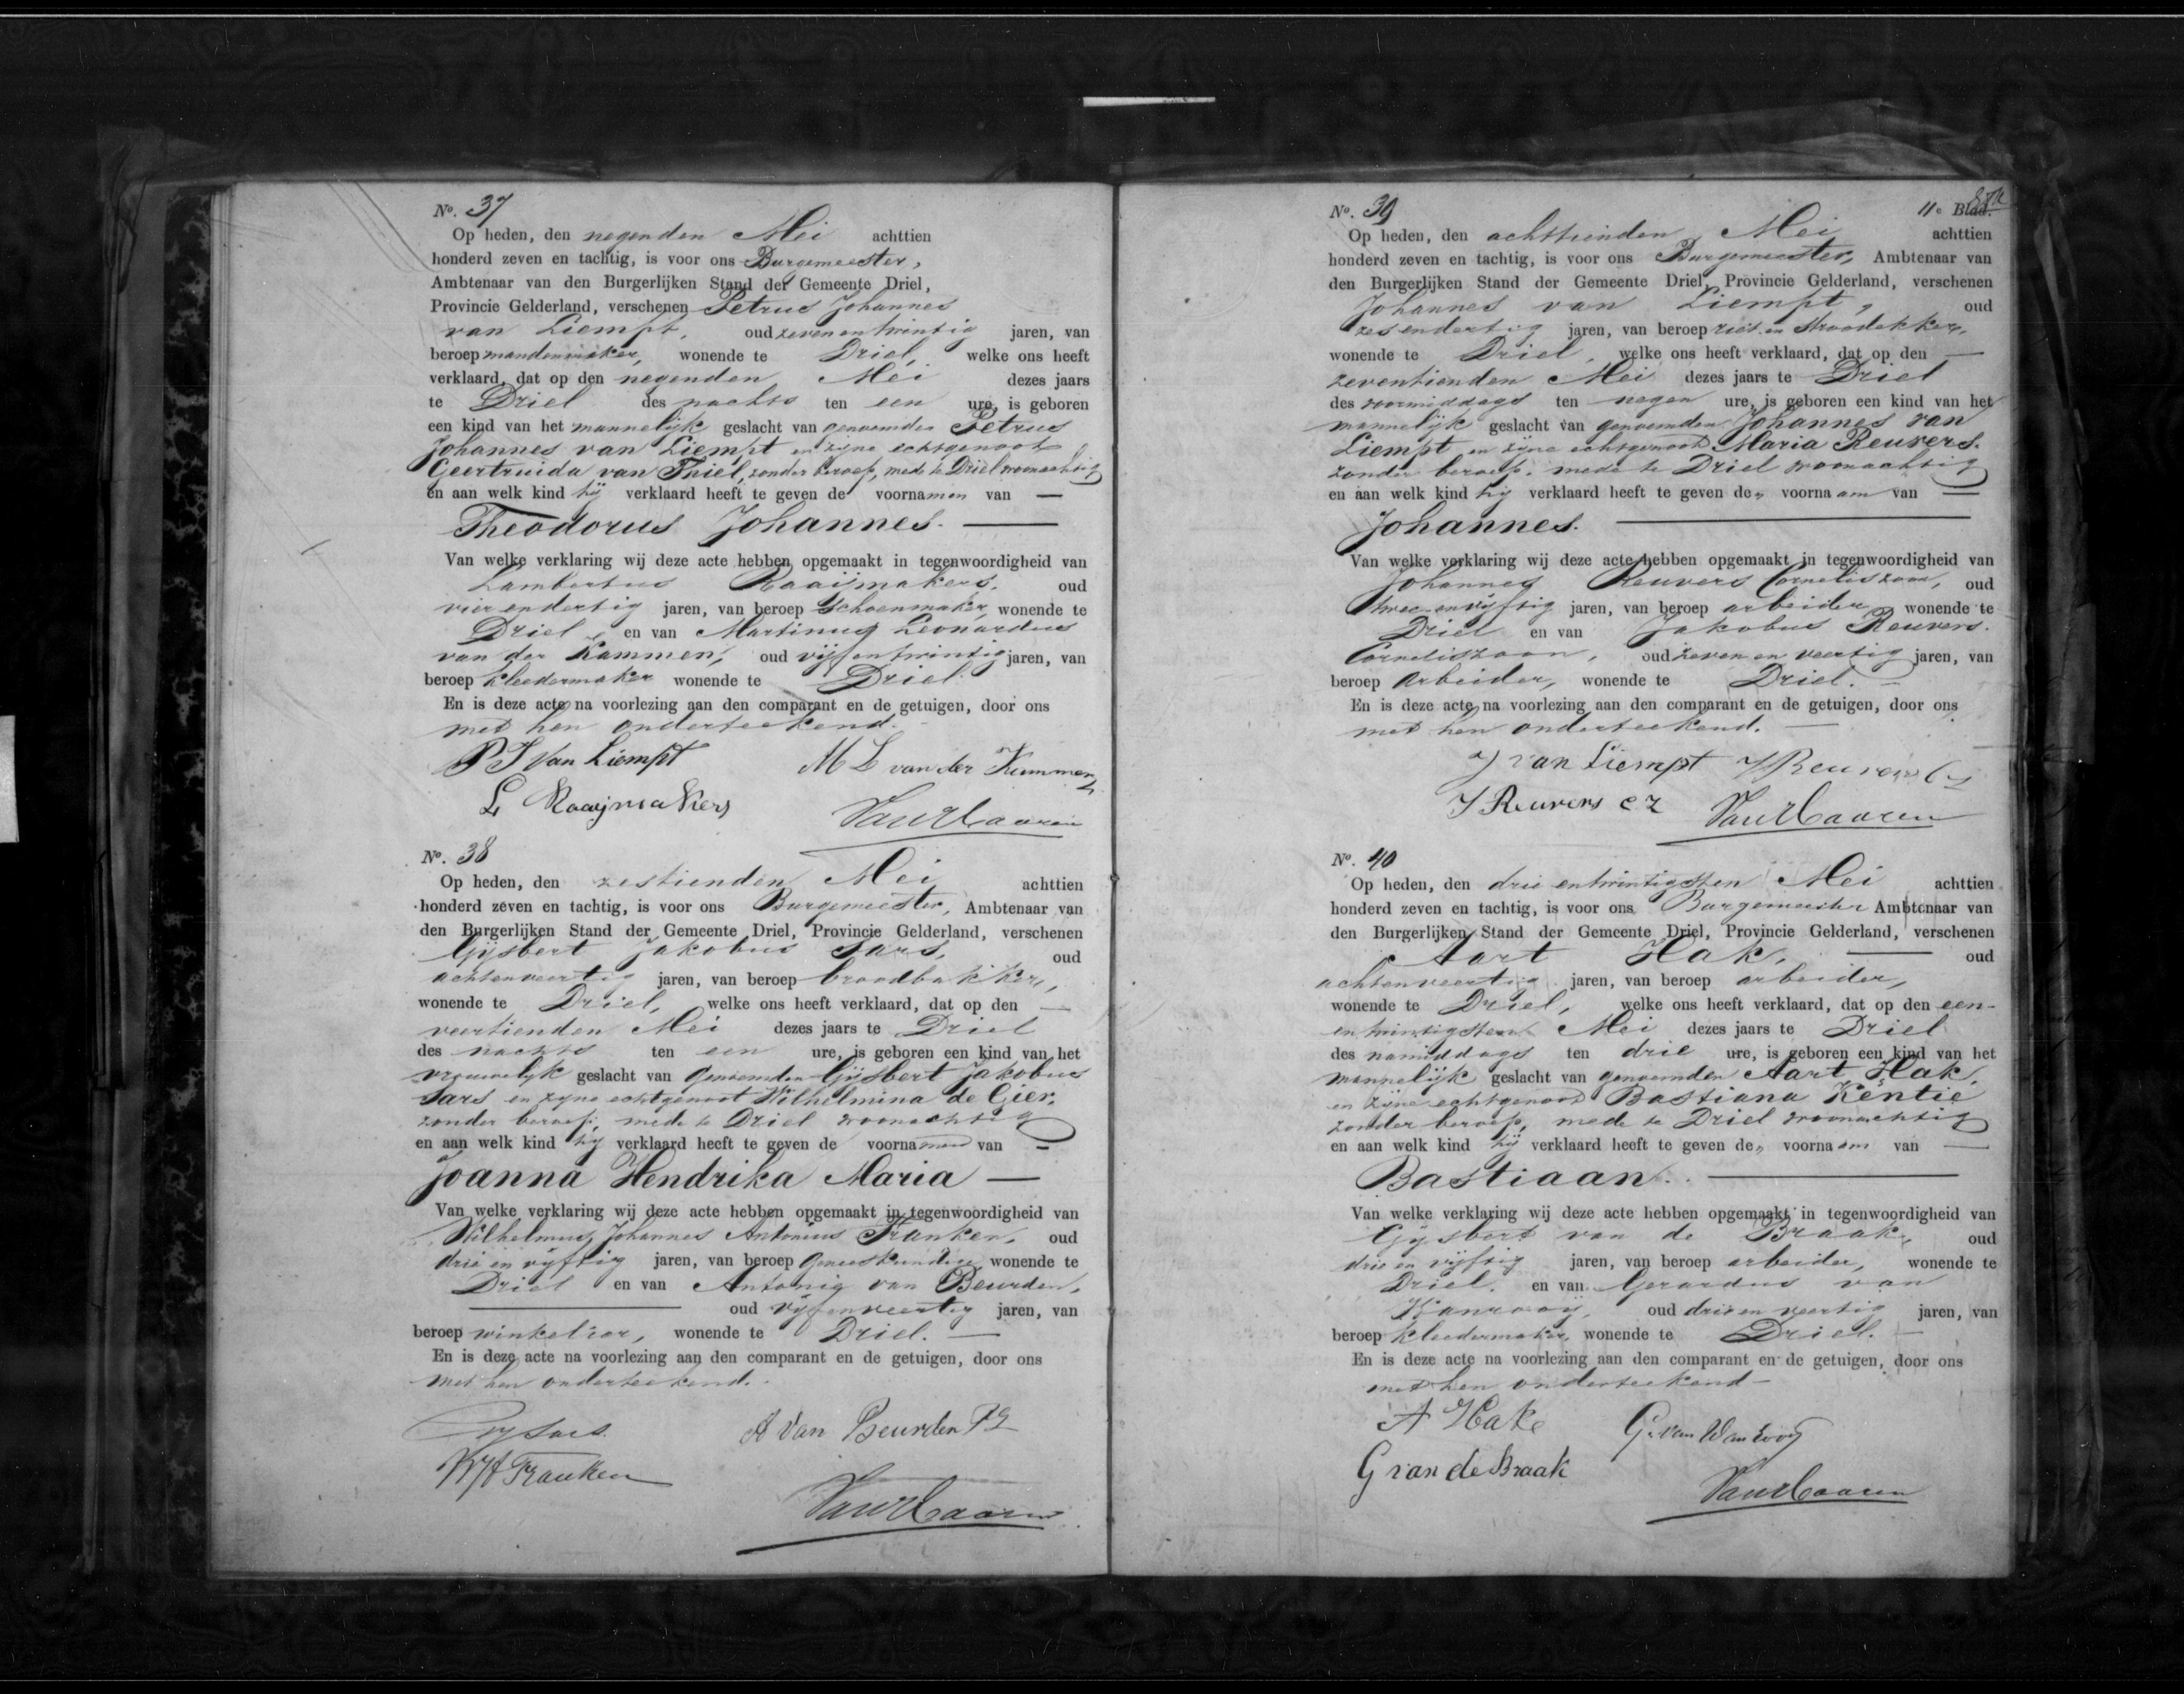 No. 37
Op heden, den negenden Mei achttien
honderd zeven en tachtig, is voor ons Burgemeester,
Ambtenaar van den Burgerlijken Stand der Gemeente Driel,
Provincie Gelderland, verschenen Petrus Johannes
van Liempt, oud zevenentwintig jaren, van
beroep mandenmaker, wonende te Driel, welke ons heeft
verklaard, dat op den negenden Mei dezes jaars
te Driel des nachts ten een ure, is geboren
een kind van het mannelijk geslacht van genoemden Petrus
Johannes van Liempt en zijne echtgenoot
Geertruida van Thiel, zonder beroep, mede te Driel woonachtig
en aan welk kind hij verklaard heeft te geven de voornamen van —
Theodorus Johannes. —
Van welke verklaring wij deze acte hebben opgemaakt in tegenwoordigheid van
Lambertus Raaijmakers, oud
vierendertig jaren, van beroep Schoenmaker, wonende te
Driel en van Martinus Leonardus
van der Kammen, oud vijfentwintig jaren, van
beroep kleedermaker wonende te Driel.
En is deze acte na voorlezing aan den comparant en de getuigen, door ons
met hen onderteekend.
P J van Liempt M L van der Kammen
L Raaijmakers
No. 38
Op heden, den zestienden Mei achttien
honderd zeven en tachtig, is voor ons Burgemeester, Ambtenaar van
den Burgerlijken Stand der Gemeente Driel, Provincie Gelderland, verschenen
Gijsbert Jakobus Sars, oud
achtenveertig jaren, van beroep broodbakker,
wonende te Driel, welke ons heeft verklaard, dat op den —
veertienden Mei dezes jaars te Driel
des nachts ten een ure, is geboren een kind van het
vrouwelijk geslacht van genoemden Gijsbert Jakobus
Sars en zijne echtgenoot Wilhelmina de Gier,
zonder beroep, mede te Driel woonachtig
en aan welk kind hij verklaard heeft te geven de voornamen van —
Joanna Hendrika Maria —
Van welke verklaring wij deze acte hebben opgemaakt in tegenwoordigheid van
Wilhelmus Johannes Antonius Franken, oud
drie en vijftig jaren, van beroep Geneeskundige, wonende te
Driel en van Antonie van Beurden,
— oud vijfenveertig jaren, van
beroep winkelier, wonende te Driel. —
En is deze acte na voorlezing aan den comparant en de getuigen, door ons
met hen onderteekend.
A van Beurden
Franken
No. 39 11e Blad.
Op heden, den achttienden Mei achttien
honderd zeven en tachtig, is voor ons Burgemeester, Ambtenaar van
den Burgerlijken Stand der Gemeente Driel, Provincie Gelderland, verschenen
Johannes van Liempt, oud
zesendertig jaren, van beroep riet en stroodekker,
wonende te Driel, welke ons heeft verklaard, dat op den —
zeventienden Mei dezes jaars te Driel
des voormiddags ten negen ure, is geboren een kind van het
mannelijk geslacht van genoemden Johannes van
Liempt en zijne echtgenoot Maria Reuvers.
zonder beroep, mede te Driel woonachtig
en aan welk kind hij verklaard heeft te geven de„ voornaam van —
Johannes. —
Van welke verklaring wij deze acte hebben opgemaakt in tegenwoordigheid van
Johannes Reuvers Corneliszoon, oud
twee-envijftig jaren, van beroep arbeider, wonende te
Driel en van Jakobus Reuvers.
Corneliszoon, oud zeven en veertig jaren, van
beroep arbeider, wonende te Driel. —
En is deze acte na voorlezing aan den comparant en de getuigen, door ons
met hen onderteekend. —
J van Liempt J Reuvers Cz
J Reuvers cz
No. 40
Op heden, den drie entwintigsten Mei achttien
honderd zeven en tachtig, is voor ons Burgemeester Ambtenaar van
den Burgerlijken Stand der Gemeente Driel, Provincie Gelderland, verschenen
Aart Hak, — oud
achtenveertig jaren, van beroep arbeider,
wonende te Driel, welke ons heeft verklaard, dat op den een-
entwintigsten Mei dezes jaars te Driel
des namiddags ten drie ure, is geboren een kind van het
mannelijk geslacht van genoemden Aart Hak,
en zijne echtgenoot Bastiana Kentie
zonder beroep, mede te Driel woonachtig
en aan welk kind hij verklaard heeft te geven de„ voornaam van —
Bastiaan. —
Van welke verklaring wij deze acte hebben opgemaakt in tegenwoordigheid van
Gijsbert van de Braak, oud
drie en vijftig jaren, van beroep arbeider, wonende te
Driel. en van Gerardus van
Wanrooij, oud drie en veertig jaren, van
beroep kleedermaker, wonende te Driel. —
En is deze acte na voorlezing aan den comparant en de getuigen, door ons
met hen onderteekend —
A Hak G. van Wanrooij
G van de Braak